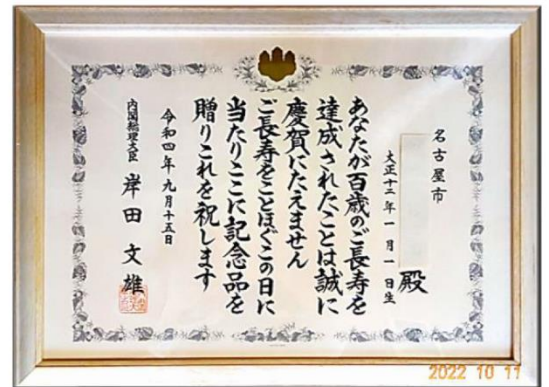 名古屋市
殿
大正十二年一月一日生
あなたが百歳のご長寿を
達成されたことは誠に
慶賀にたえません
ご長寿をことほぐこの日に
当たりここに記念品を
贈りこれを祝します
令和四年九月十五日
内閣総理大臣 岸田文雄
2022 10 11